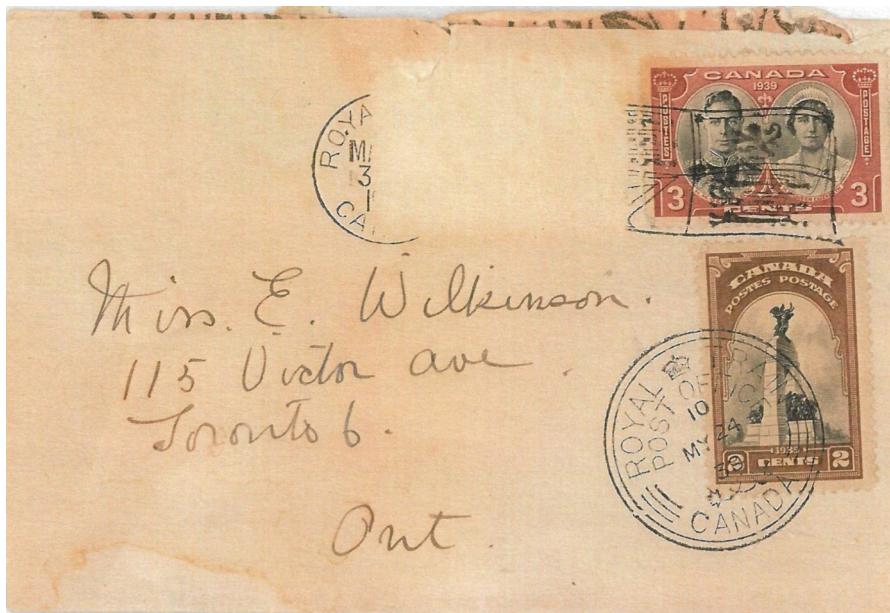 CANADA
1939
POSTES POSTAGE
3 CENTS 3
ROYA
MA
3
1
CA
CANADA
POSTES POSTAGE
1938
2 CENTS 2
ROYAL TRAIN
POST OFFICE
10
MY 24
39
CANADA
Miss. E. Wilkinson.
115 Victor Ave.
Toronto 6.
Ont.